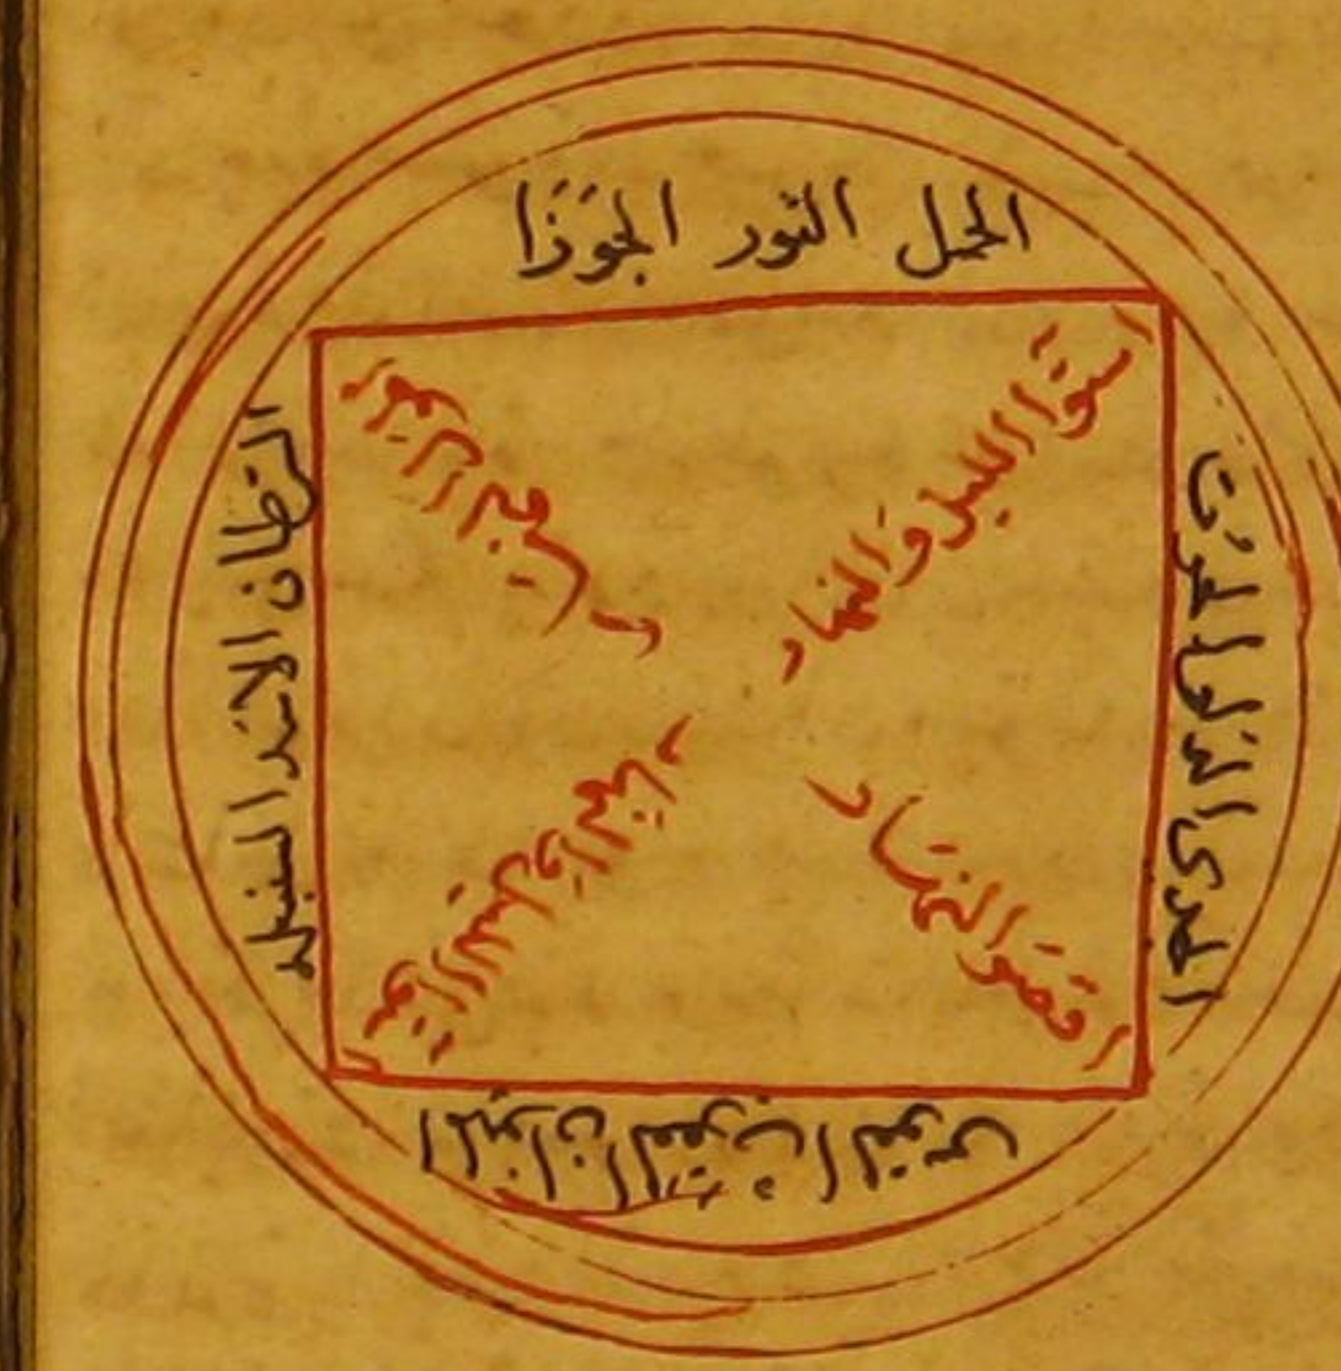 الحمل الثور الجوزا
السرطان الاسد السنبله
الميزان العقرب القوس
الجدى الدلو الحوت
استوا الليل والنهار
استوا الليل والنهار
اقصر النهار